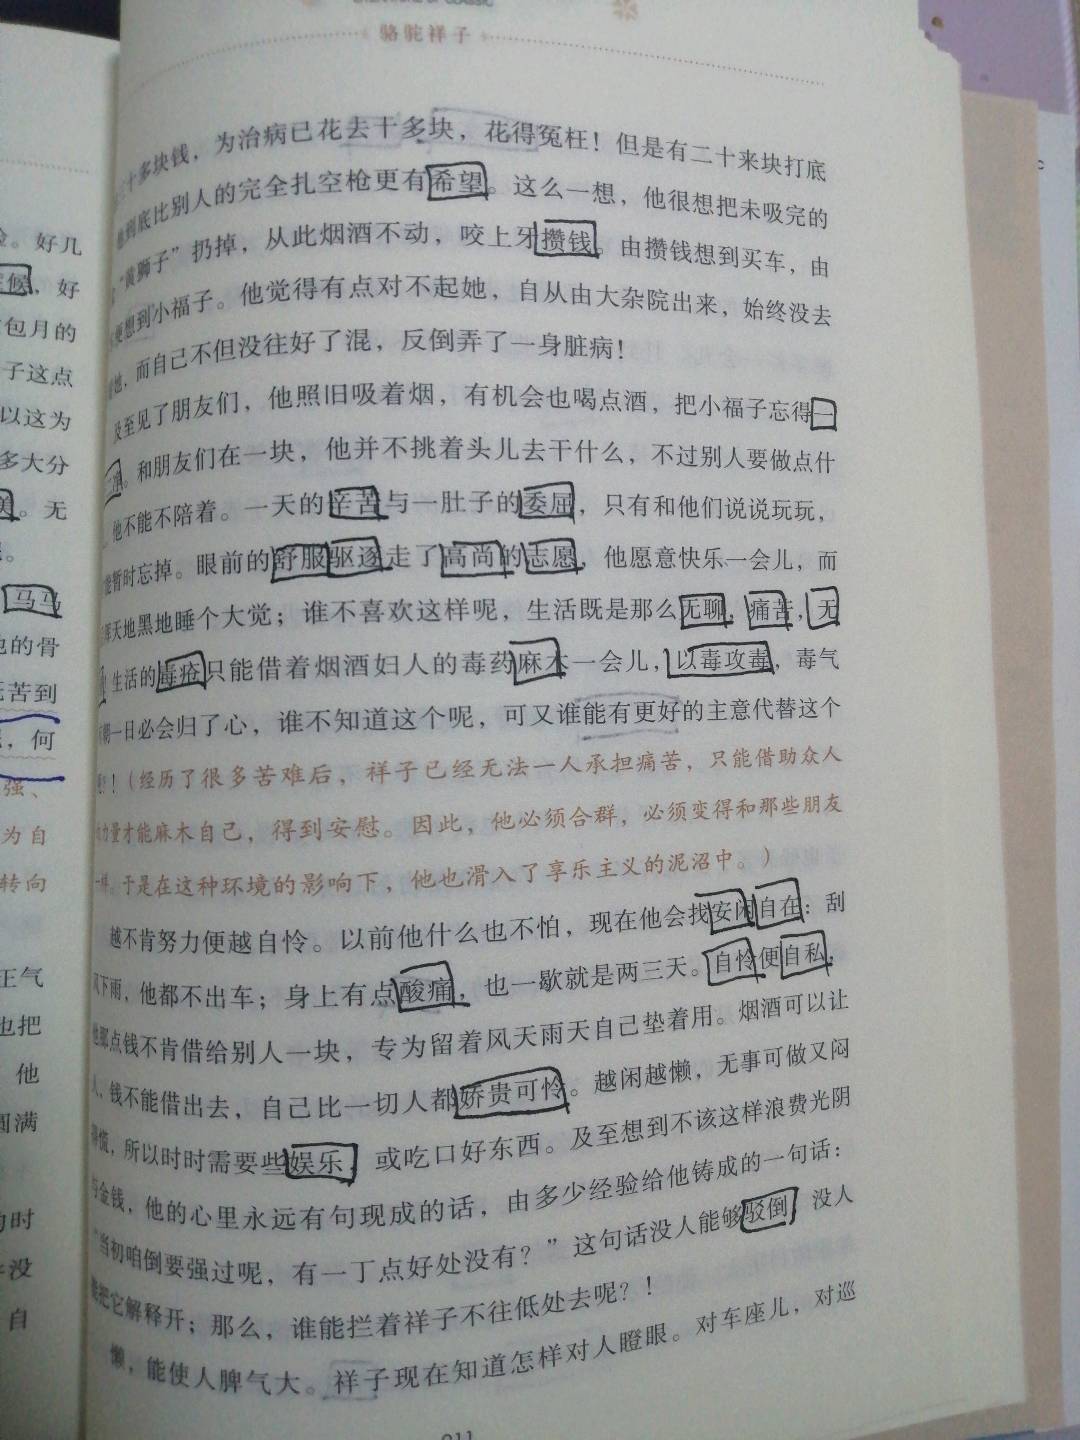 骆驼祥子
十多块钱，为治病已花去十多块，花得冤枉！但是有二十来块打底
到底比别人的完全扎空枪更有希望。这么一想，他很想把未吸完的
“黄狮子”扔掉，从此烟酒不动，咬上牙攒钱。由攒钱想到买车，由
便想到小福子。他觉得有点对不起她，自从由大杂院出来，始终没去
她，而自己不但没往好了混，反倒弄了一身脏病！
及至见了朋友们，他照旧吸着烟，有机会也喝点酒，把小福子忘得一
二净。和朋友们在一块，他并不挑着头儿去干什么，不过别人要做点什
他不能不陪着。一天的辛苦与一肚子的委屈，只有和他们说说玩玩，
能暂时忘掉。眼前的舒服驱逐走了高尚的志愿，他愿意快乐一会儿，而
天地黑地睡个大觉；谁不喜欢这样呢，生活既是那么无聊，痛苦，无
生活的毒疮只能借着烟酒妇人的毒药麻木一会儿，以毒攻毒，毒气
朝一日必会归了心，谁不知道这个呢，可又谁能有更好的主意代替这个
呢？！（经历了很多苦难后，祥子已经无法一人承担痛苦，只能借助众人
力量才能麻木自己，得到安慰。因此，他必须合群，必须变得和那些朋友
一样。于是在这种环境的影响下，他也滑入了享乐主义的泥沼中。）
越不肯努力便越自怜。以前他什么也不怕，现在他会找安闲自在：刮
风下雨，他都不出车；身上有点酸痛，也一歇就是两三天。自怜便自私，
他那点钱不肯借给别人一块，专为留着风天雨天自己垫着用。烟酒可以让
人，钱不能借出去，自己比一切人都娇贵可怜。越闲越懒，无事可做又闷
得慌，所以时时需要些娱乐，或吃口好东西。及至想到不该这样浪费光阴
与金钱，他的心里永远有句现成的话，由多少经验给他铸成的一句话：
“当初咱倒要强过呢，有一丁点好处没有？”这句话没人能够驳倒，没人
能把它解释开；那么，谁能拦着祥子不往低处去呢？！
懒，能使人脾气大。祥子现在知道怎样对人瞪眼。对车座儿，对巡